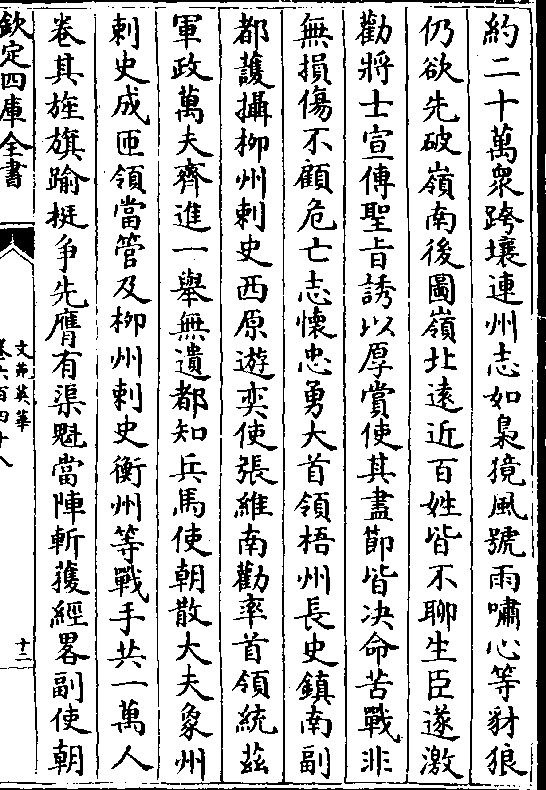 約二十萬衆跨壤連州志如梟獍風號雨嘯心等豺狼
仍欲先破嶺南後圖嶺北遠近百姓皆不聊生臣遂激
勸將士宣傳聖旨誘以厚賞使其盡節皆决命苦戰非
無損傷不顧危亡志懷忠勇大首領梧州長史鎮南副
都護攝柳州刺史西原遊奕使張維南勸率首領統兹
軍政萬夫齊進一舉無遺都知兵馬使朝散大夫象州
刺史成匝領當管及柳州刺史衡州等戰手共一萬人
卷其旌旗踰挺争先膺有渠魁當陣斬獲經畧副使朝
欽定四庫全書
文苑英華
卷六百四十八
十二